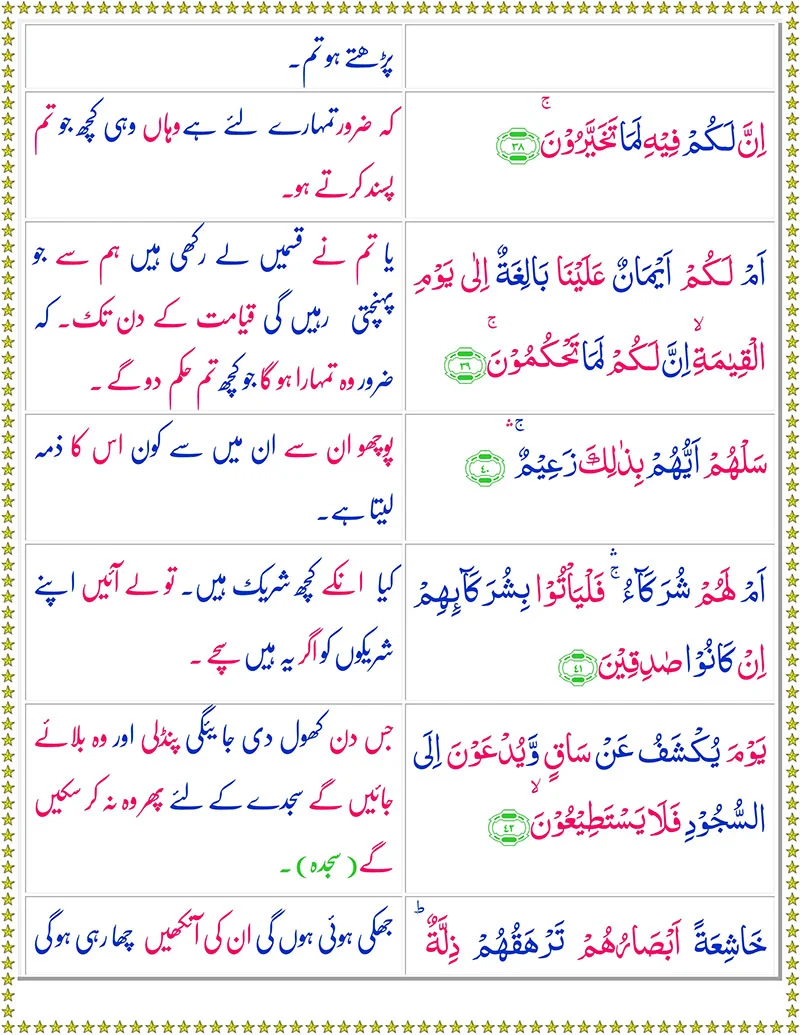 پڑھتے ہو تم۔
اِنَّ لَكُمْ فِيْهِ لَمَا تَخَيَّرُوْنَ ۚ ٣٨
کہ ضرور تمہارے لئے ہے وہاں وہی کچھ جو تم
پسند کرتے ہو۔
اَمْ لَكُمْ اَيْمَانٌ عَلَيْنَا بَالِغَةٌ اِلٰى يَوْمِ
الْقِيٰمَةِ ۙ اِنَّ لَكُمْ لَمَا تَحْكُمُوْنَ ۚ ٣٩
یا تم نے قسمیں لے رکھی ہیں ہم سے جو
پہنچتی رہیں گی قیامت کے دن تک۔ کہ
ضرور وہ تمہارا ہو گا جو کچھ تم حکم دو گے ۔
سَلْهُمْ اَيُّهُمْ بِذٰلِكَ زَعِيْمٌ ۚ ۛ ٤٠
پوچھو ان سے ان میں سے کون اس کا ذمہ
لیتا ہے۔
اَمْ لَهُمْ شُرَكَآءُ ۚ ۛ فَلْيَاْتُوْا بِشُرَكَآىِٕهِمْ
اِنْ كَانُوْا صٰدِقِيْنَ ٤١
کیا انکے کچھ شریک ہیں۔ تو لے آئیں اپنے
شریکوں کو اگر یہ ہیں سچے ۔
يَوْمَ يُكْشَفُ عَنْ سَاقٍ وَّيُدْعَوْنَ اِلَى
السُّجُوْدِ فَلَا يَسْتَطِيْعُوْنَ ۙ ٤٢
جس دن کھول دی جایئگی پنڈلی اور وہ بلائے
جائیں گے سجدے کے لئے پھر وہ نہ کر سکیں
گے (سجدہ) ۔
خَاشِعَةً اَبْصَارُهُمْ تَرْهَقُهُمْ ذِلَّةٌ ؕ
جھکی ہوئی ہوں گی ان کی آنکھیں چھا رہی ہوگی